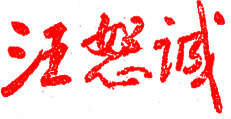 汪恕诚